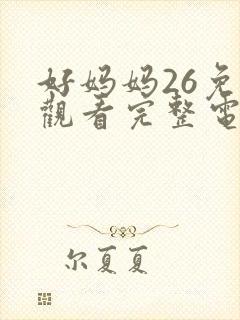 好妈妈26免
觀看完整電
尔夏夏